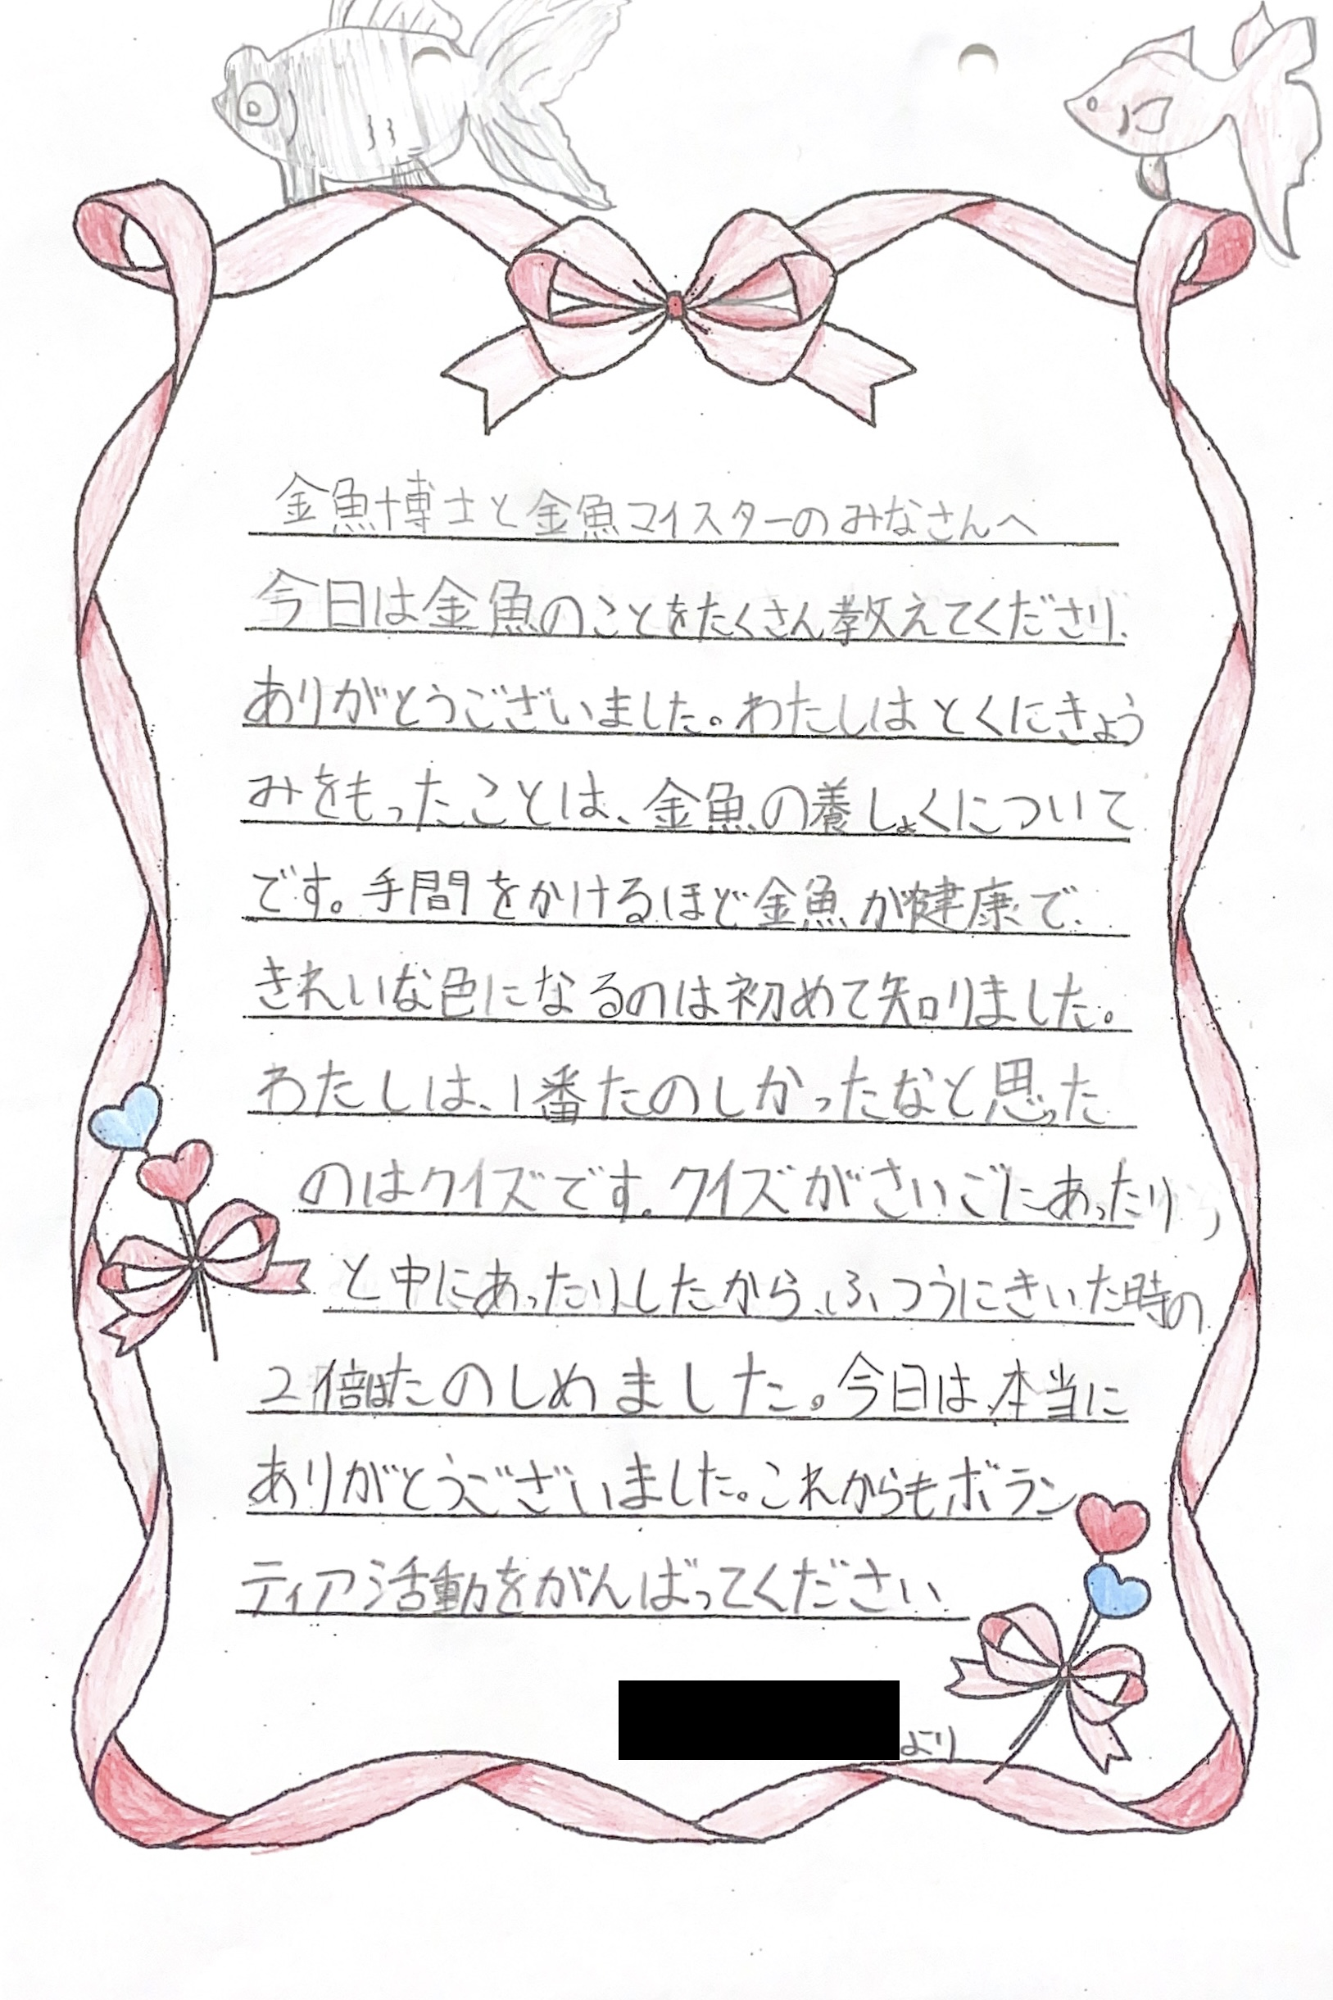 金魚博士と金魚マイスターのみなさんへ
今日は金魚のことをたくさん教えてくださり、
ありがとうございました。わたしはとくにきょう
みをもったことは、金魚の養しょくについて
です。手間をかけるほど金魚が健康で、
きれいな色になるのは初めて知りました。
わたしは、1番たのしかったなと思った
のはクイズです。クイズがさいごにあったり、
と中にあったりしたから、ふつうにきいた時の
2倍はたのしめました。今日は、本当に
ありがとうございました。これからもボラン
ティア活動をがんばってください
より